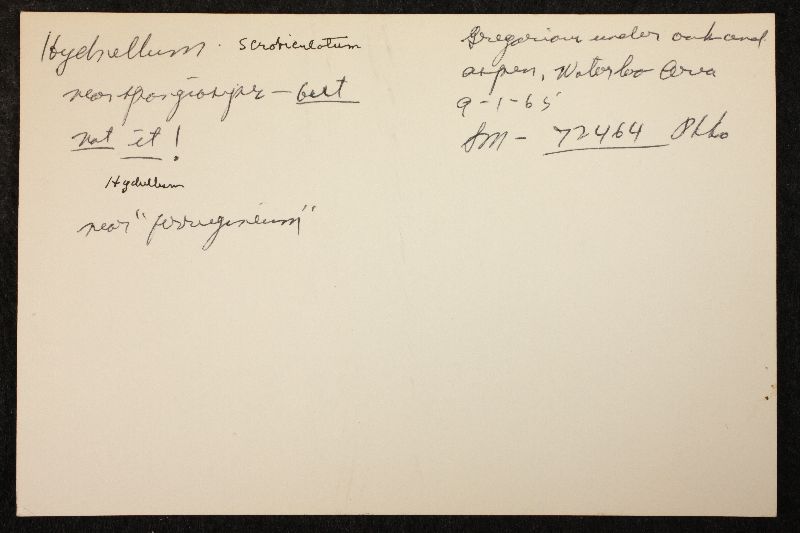 Hydnellum · scrobiculatum
near spongiosipes – but
not it!
Hydnellum
near "ferrugineum"
Gregarious under oak and
aspen, Waterloo Area
9-1-65
Sm - 72464 Photo